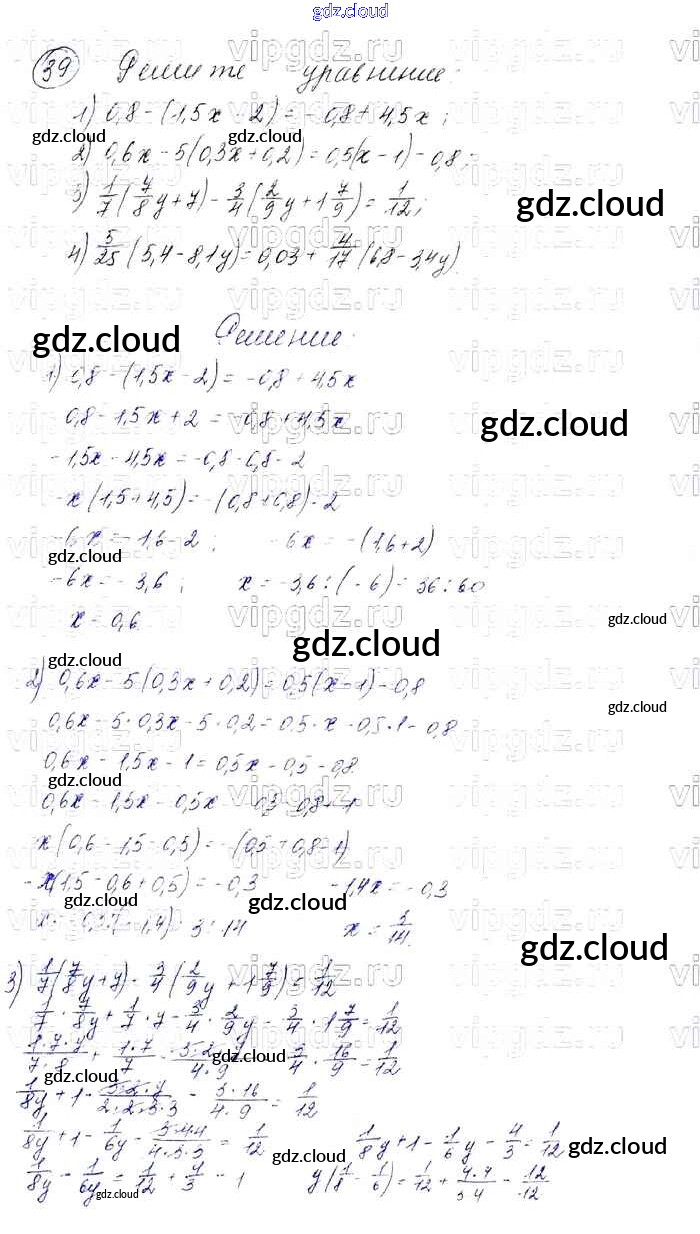 gdz.cloud
39 Решите уравнение:
1) 0,8 - (1,5x - 2) = -0,8 + 4,5x;
gdz.cloud gdz.cloud
2) 0,6x - 5(0,3x + 0,2) = 0,5(x - 1) - 0,8;
3) 1/7 (7/8 y + 7) - 3/4 (2/9 y + 1 7/9) = 1/12;
gdz.cloud
4) 5/25 (5,4 - 8,1y) = 0,03 + 4/17 (6,8 - 3,4y)
Решение:
gdz.cloud
1) 0,8 - (1,5x - 2) = -0,8 + 4,5x
0,8 - 1,5x + 2 = -0,8 + 4,5x
gdz.cloud
-1,5x - 4,5x = -0,8 - 0,8 - 2
-x(1,5 + 4,5) = -(0,8 + 0,8) - 2
-6x = -1,6 - 2; -6x = -(1,6 + 2)
gdz.cloud
-6x = -3,6; x = -3,6 : (-6) = 36 : 60
x = 0,6
gdz.cloud
gdz.cloud
gdz.cloud
2) 0,6x - 5(0,3x + 0,2) = 0,5(x - 1) - 0,8
gdz.cloud
0,6x - 5 · 0,3x - 5 · 0,2 = 0,5 · x - 0,5 · 1 - 0,8
0,6x - 1,5x - 1 = 0,5x - 0,5 - 0,8
gdz.cloud
0,6x - 1,5x - 0,5x = -0,5 - 0,8 + 1
x(0,6 - 1,5 - 0,5) = -(0,5 + 0,8 - 1)
-x(1,5 - 0,6 + 0,5) = -0,3 -1,4x = -0,3
gdz.cloud gdz.cloud
x = -0,3 : (-1,4) = 3 : 14 x = 3/14.
gdz.cloud
3) 1/7 (7/8 y + 7) - 3/4 (2/9 y + 1 7/9) = 1/12
1/7 · 7/8y + 1/7 · 7 - 3/4 · 2/9y - 3/4 · 1 7/9 = 1/12
gdz.cloud
1·7·y/7·8 + 1·7/7 - 3·2·y/4·9 - 3/4 · 16/9 = 1/12
gdz.cloud
1/8y + 1 - 3·2·y/2·2·3·3 - 3·16/4·9 = 1/12
1/8y + 1 - 1/6y - 3·4·4/4·3·3 = 1/12 1/8 y + 1 - 1/6 y - 4/3 = 1/12
gdz.cloud gdz.cloud
1/8y - 1/6y = 1/12 + 4/3 - 1 y(1/8 - 1/6) = 1/12 + 4·4/3·4 - 12/12
gdz.cloud